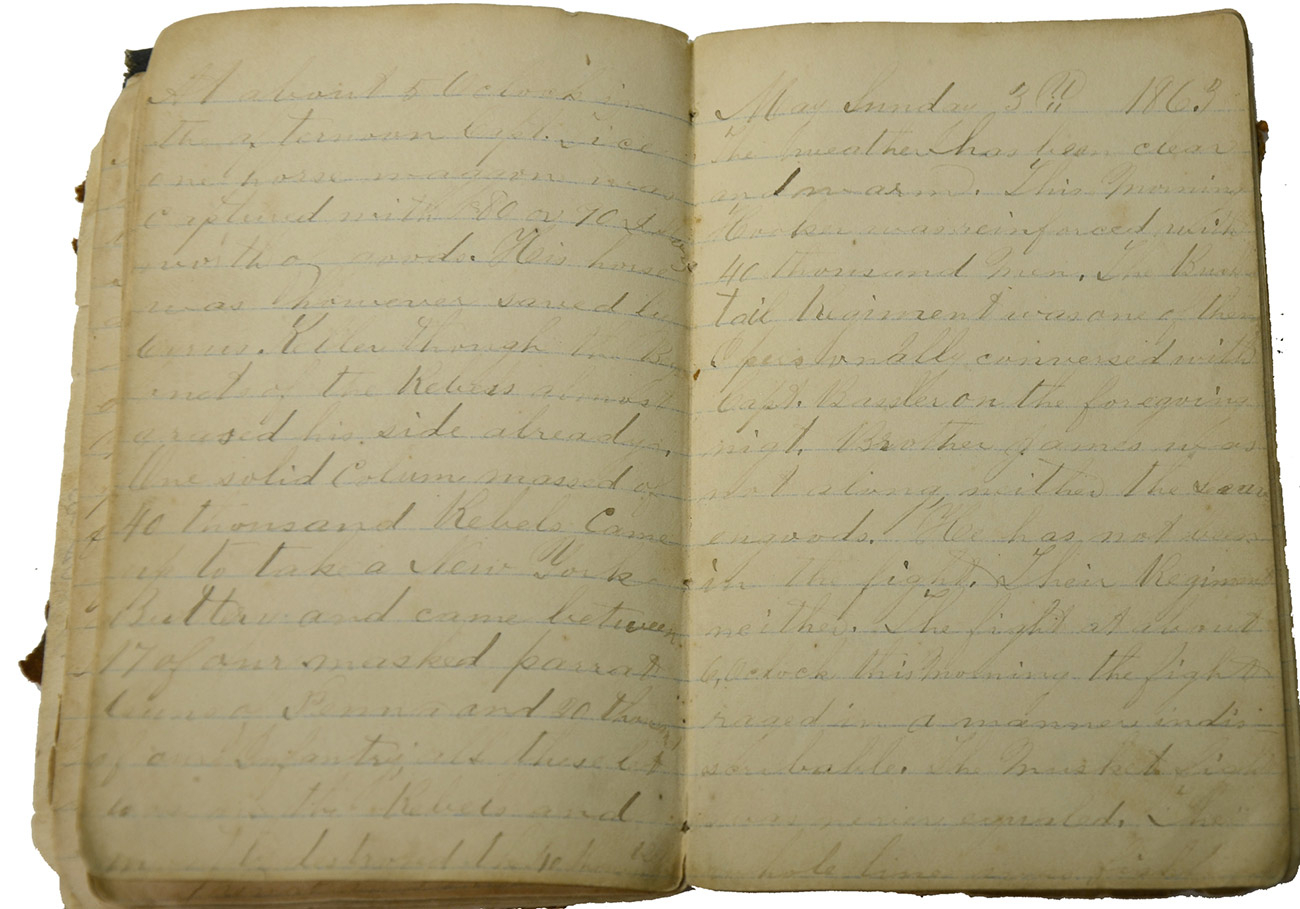 At about 5 Oclock in
the afternoon Capt. Rice
one horse waggon was
captured with 80 or 90 Dollars
worth of goods. His horse
was however saved by
Cirus. Keller though the Bay
nets of the Rebels almost
grased his side already.
One solid Colum massed of
40 thousand Rebels Came
up to take a New York
Battery and came between
17 of our masked parrat
Guns of Penna and 20 thousand
of our Infantry all these let
on the Rebels and
destroyed
May Sunday 3d 1863
The weather has been clear
and warm. This Morning
Hooker was reinforced with
40 thousand Men. The Buck
tail Regiment was one of them
I personally conversed with
Capt. on the foregoing
nigt. Brother James was
not along neither the
engoods. He has not been
in the fight. Their Regiment
neither. The fight at about
6 Oclock this Morning the fight
raged in a manner indis
scribable. The Musket
was never equaled. The
hole line